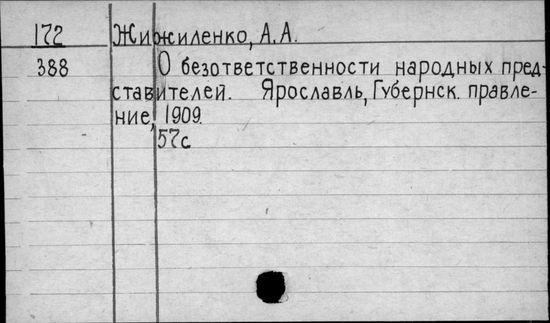 172 Жижиленко, А.А.
388 О безответственности народных пред-
ставителей. Ярославль, Губернск. правле-
ние, 1909.
57с.